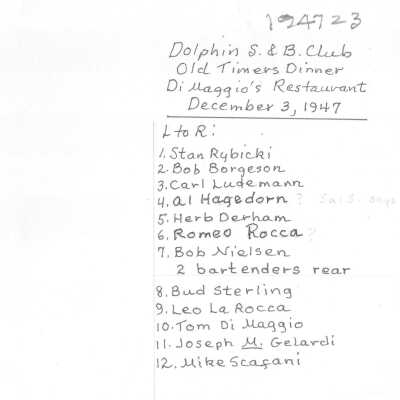 194723
Dolphin S. & B. Club
Old Timers Dinner
Di Maggio's Restaurant
December 3, 1947
L to R:
1. Stan Rybicki
2. Bob Borgeson
3. Carl Ludemann
4. Al Hagedorn ?
5. Herb Derham
6. Romeo Rocca ?
7. Bob Nielsen
2 bartenders rear
8. Bud Sterling
9. Leo La Rocca
10. Tom Di Maggio
11. Joseph M. Gelardi
12. Mike Scafani